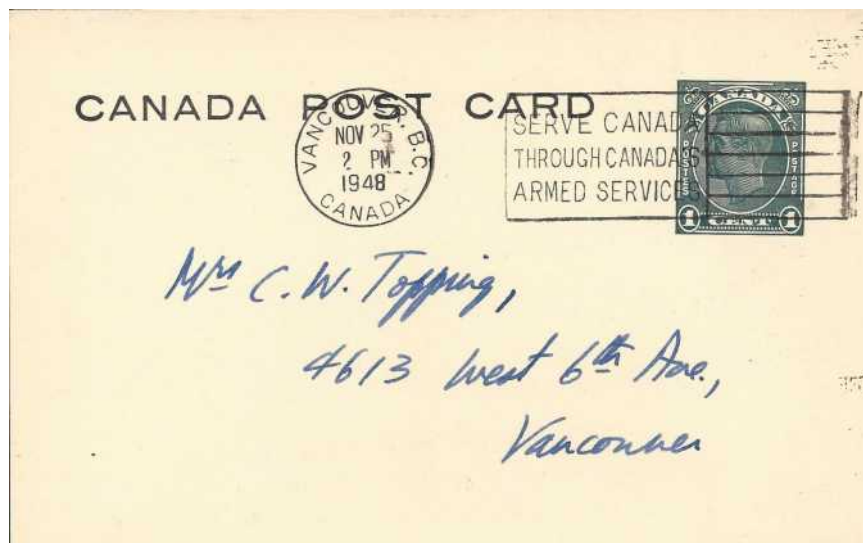 CANADA POST CARD
VANCOUVER, B.C.
NOV 25
2 PM
1948
CANADA
SERVE CANADA
THROUGH CANADA'S
ARMED SERVICES
CANADA
POSTES
POSTAGE
1 CENT 1
Mrs C. W. Topping,
4613 West 6th Ave.,
Vancouver